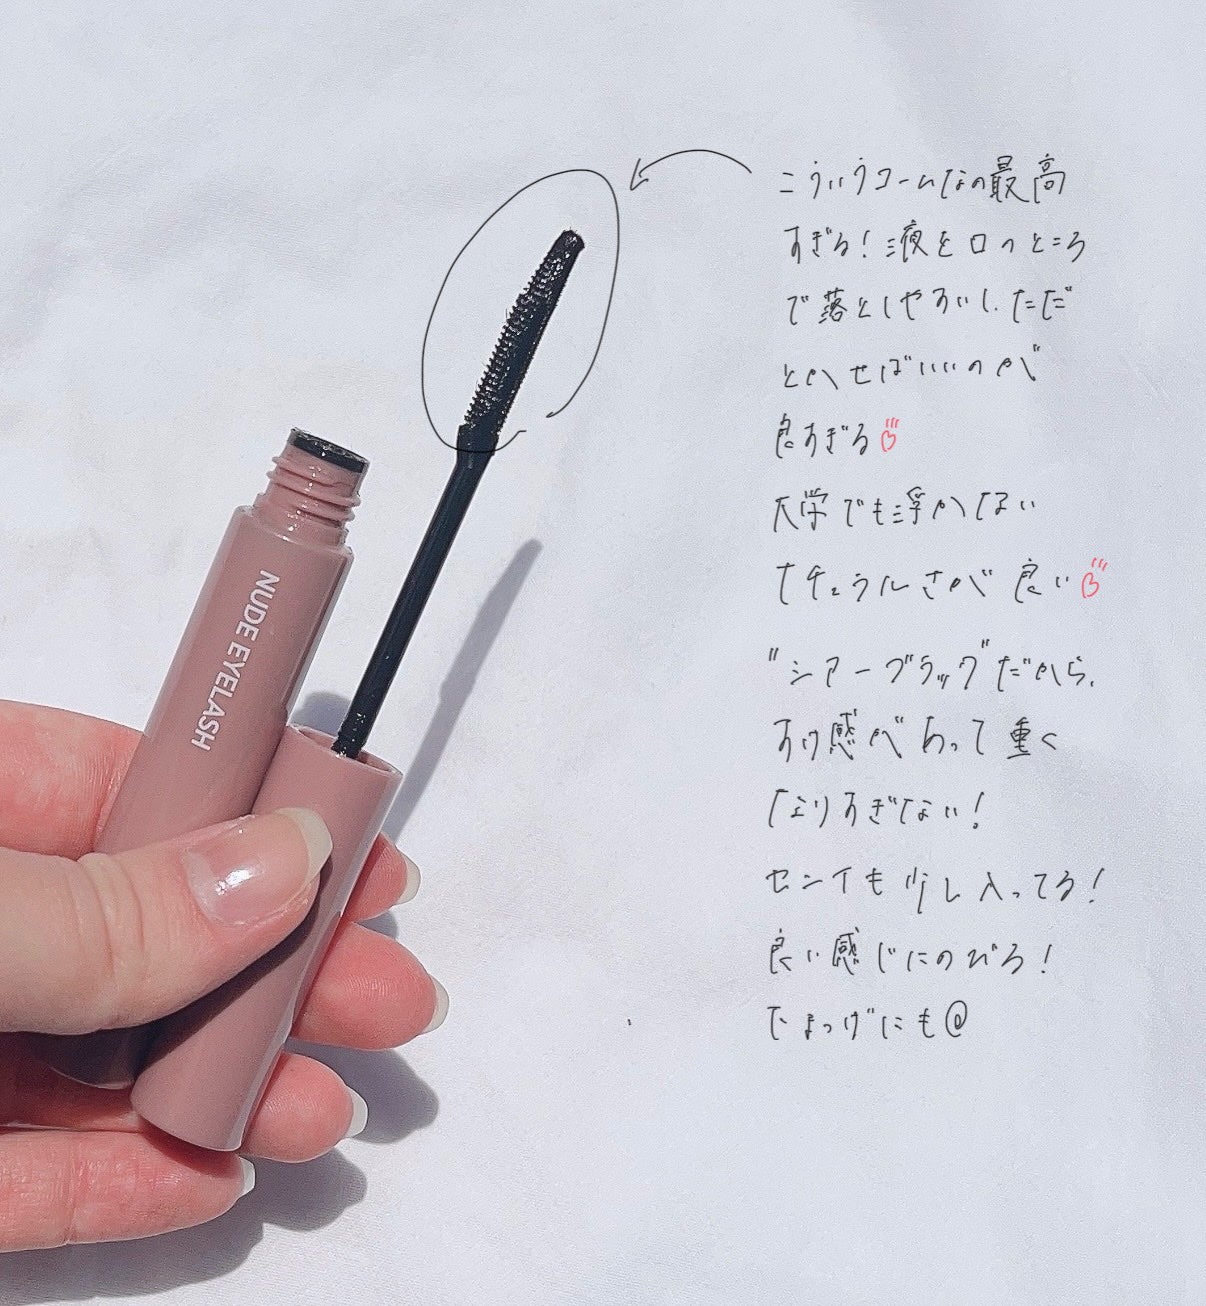 NUDE EYELASH
こういうコームなの最高
すぎる!液を口のところ
で落としやすいし、ただ
とかせばいいのが
良すぎる
大学でも浮かない
ナチュラルさが良い
"シアーブラック"だから、
すけ感があって重く
なりすぎない!
センイも少し入ってる!
良い感じにのびる!
下まつげにも@